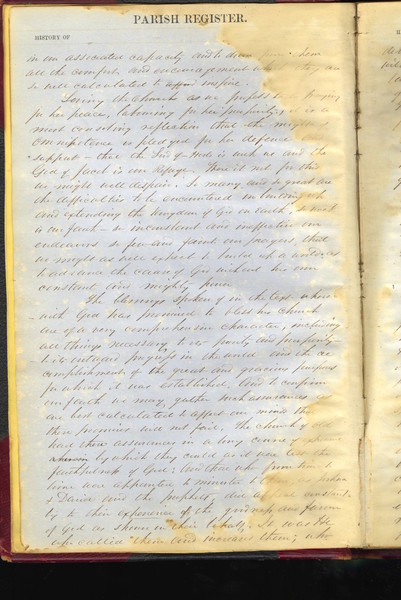 PARISH REGISTER.
HISTORY OF
in an associated capacity and to draw from them
all the comfort and encouragement which they are
so well calculated to afford inspire.
Loving the Church as we profess to do praying
for her peace, laboring for her prosperity, it is a
most consoling reflection that the might of
Omnipotence is pledged for her defence and
support - that the Lord of Hosts is with us and the
God of Jacob is our refuge. Were it not for this
we might well despair. So many and so great are
the difficulties to be encountered in building up
and extending the kingdom of God on earth, so weak
is our faith - so inconstant and ineffective our
endeavors so few and faint our prayers, that
we might as well expect to build up a world as
to advance the cause of God without his own
constant and mighty power.
The blessings spoken of in the text where
-with God has promised to bless his church
are of a very comprehensive character, including
all things necessary to its purity and prosperity -
to its outward progress in the world and the ac
complishment of the great and gracious purposes
for which it was established. And to confirm
our faith we may gather such assurances as
are best calculated to affect our minds that
these promises will not fail. The church of old
had these assurances in a long course of
by which they could as it were test the
faithfulness of God; and those who from time to
time were appointed to minister to as
David and the prophets, did appeal constant
ly to their experience of the goodness and favour
of God as shown in their It was He
who called them and increased them; who